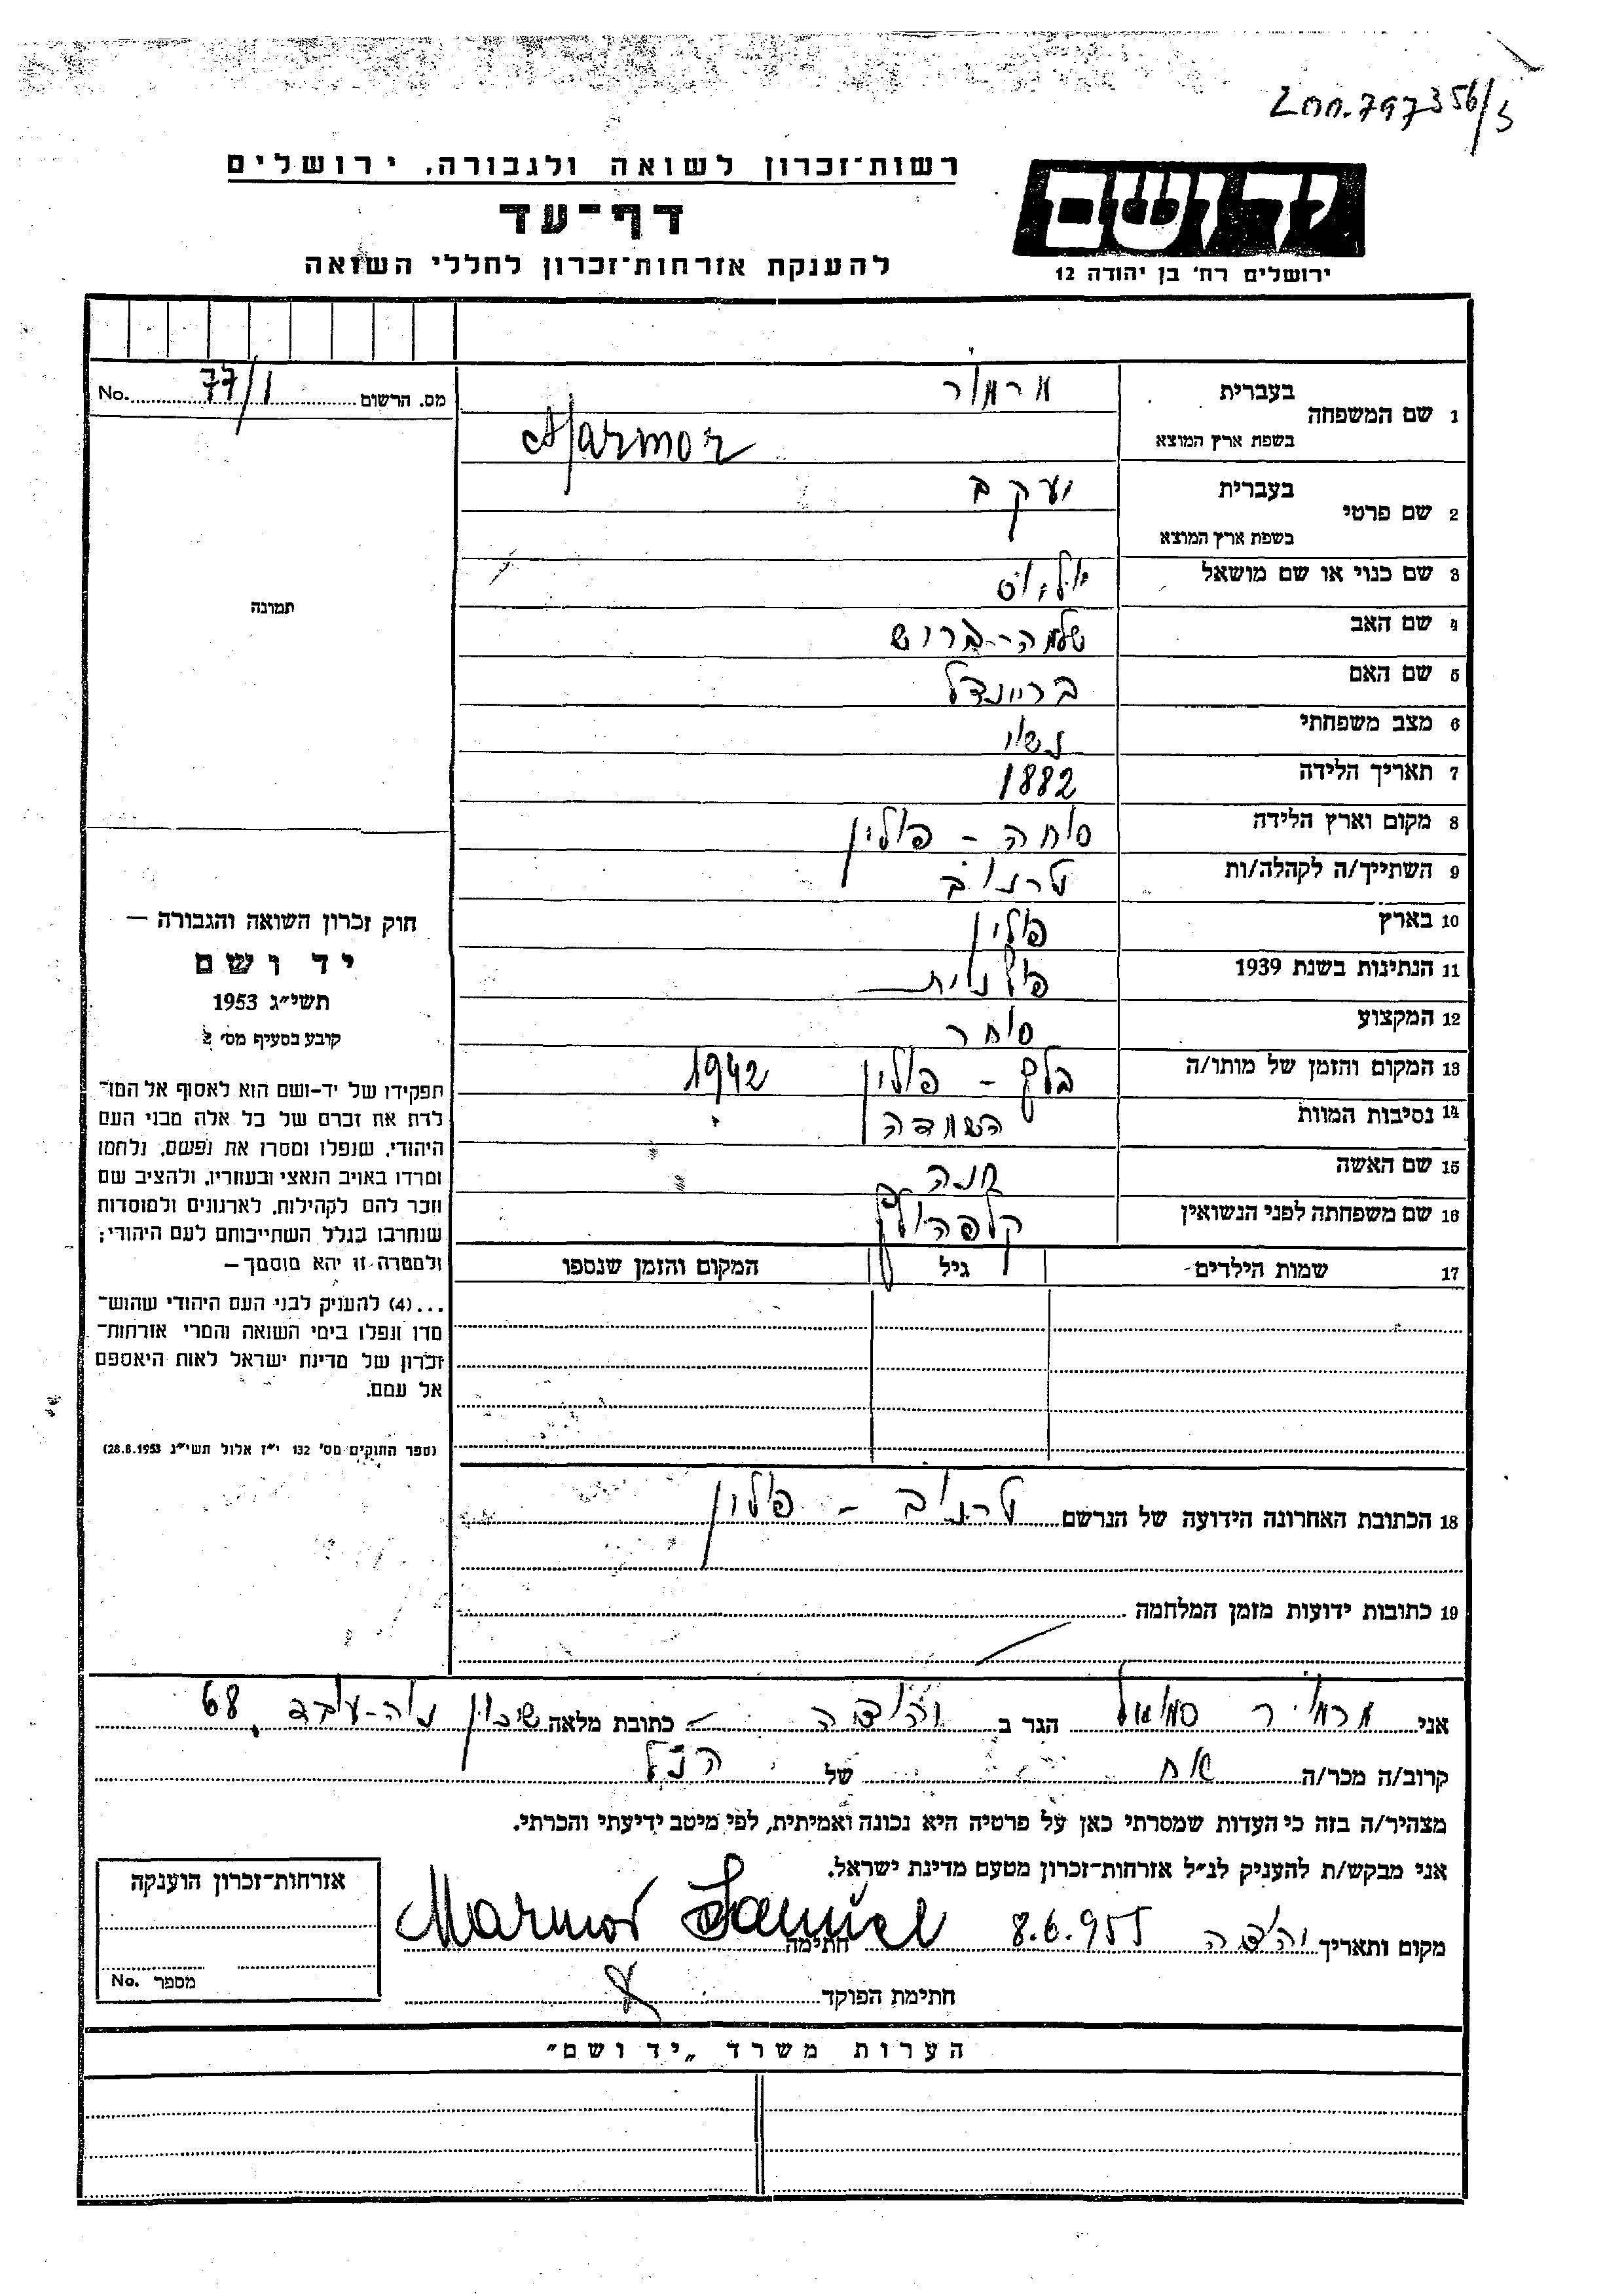 רשות־זכרון לשואה ולגבורה, ירושלים
דף־עד
להענקת אזרחות־זכרון לחללי השואה
יד ושם
ירושלים רח' בן יהודה 12
מס. הרשום 77/1 No.
1 שם המשפחה
בעברית מרמור
בשפת ארץ המוצא Marmor
2 שם פרטי
בעברית יעקב
בשפת ארץ המוצא
3 שם כנוי או שם מושאל
4 שם האב
5 שם האם בריינדל
6 מצב משפחתי נשוי
7 תאריך הלידה 1882
8 מקום וארץ הלידה סוחה - פולין
9 השתייך/ה לקהלה/ות טרנוב
10 בארץ פולין
11 הנתינות בשנת 1939 פולנית
12 המקצוע סוחר
13 המקום והזמן של מותו/ה בלזץ - פולין 1942
14 נסיבות המוות השמדה
15 שם האשה חנה
16 שם משפחתה לפני הנשואין קלפהולץ
17 שמות הילדים גיל המקום והזמן שנספו
18 הכתובת האחרונה הידועה של הנרשם טרנוב - פולין
19 כתובות ידועות מזמן המלחמה
תמונה
חוק זכרון השואה והגבורה —
יד ושם
תשי״ג 1953
קובע בסעיף מס' 2
תפקידו של יד-ושם הוא לאסוף אל המו־
לדת את זכרם של כל אלה מבני העם
היהודי, שנפלו ומסרו את נפשם, נלחמו
ומרדו באויב הנאצי ובעוזריו, ולהציב שם
וזכר להם לקהילות, לארגונים ולמוסדות
שנחרבו בגלל השתייכותם לעם היהודי;
ולמטרה זו יהא מוסמך—
...(4) להעניק לבני העם היהודי שהוש־
מדו ונפלו בימי השואה והמרי אזרחות־
זכרון של מדינת ישראל לאות היאספם
אל עמם.
(ספר החוקים מס' 132 י״ז אלול תשי״ג 28.8.1953)
אני מרמור סמואל הגר ב כתובת מלאה שיכון נוה-עובד 68
קרוב/ה מכר/ה אח של הנ״ל
מצהיר/ה בזה כי העדות שמסרתי כאן על פרטיה היא נכונה ואמיתית, לפי מיטב ידיעתי והכרתי.
אני מבקש/ת להעניק לנ״ל אזרחות־זכרון מטעם מדינת ישראל.
מקום ותאריך 8.6.955 חתימה Marmor Samuel
חתימת הפוקד
אזרחות־זכרון הוענקה
מספר No.
הערות משרד „יד ושם״